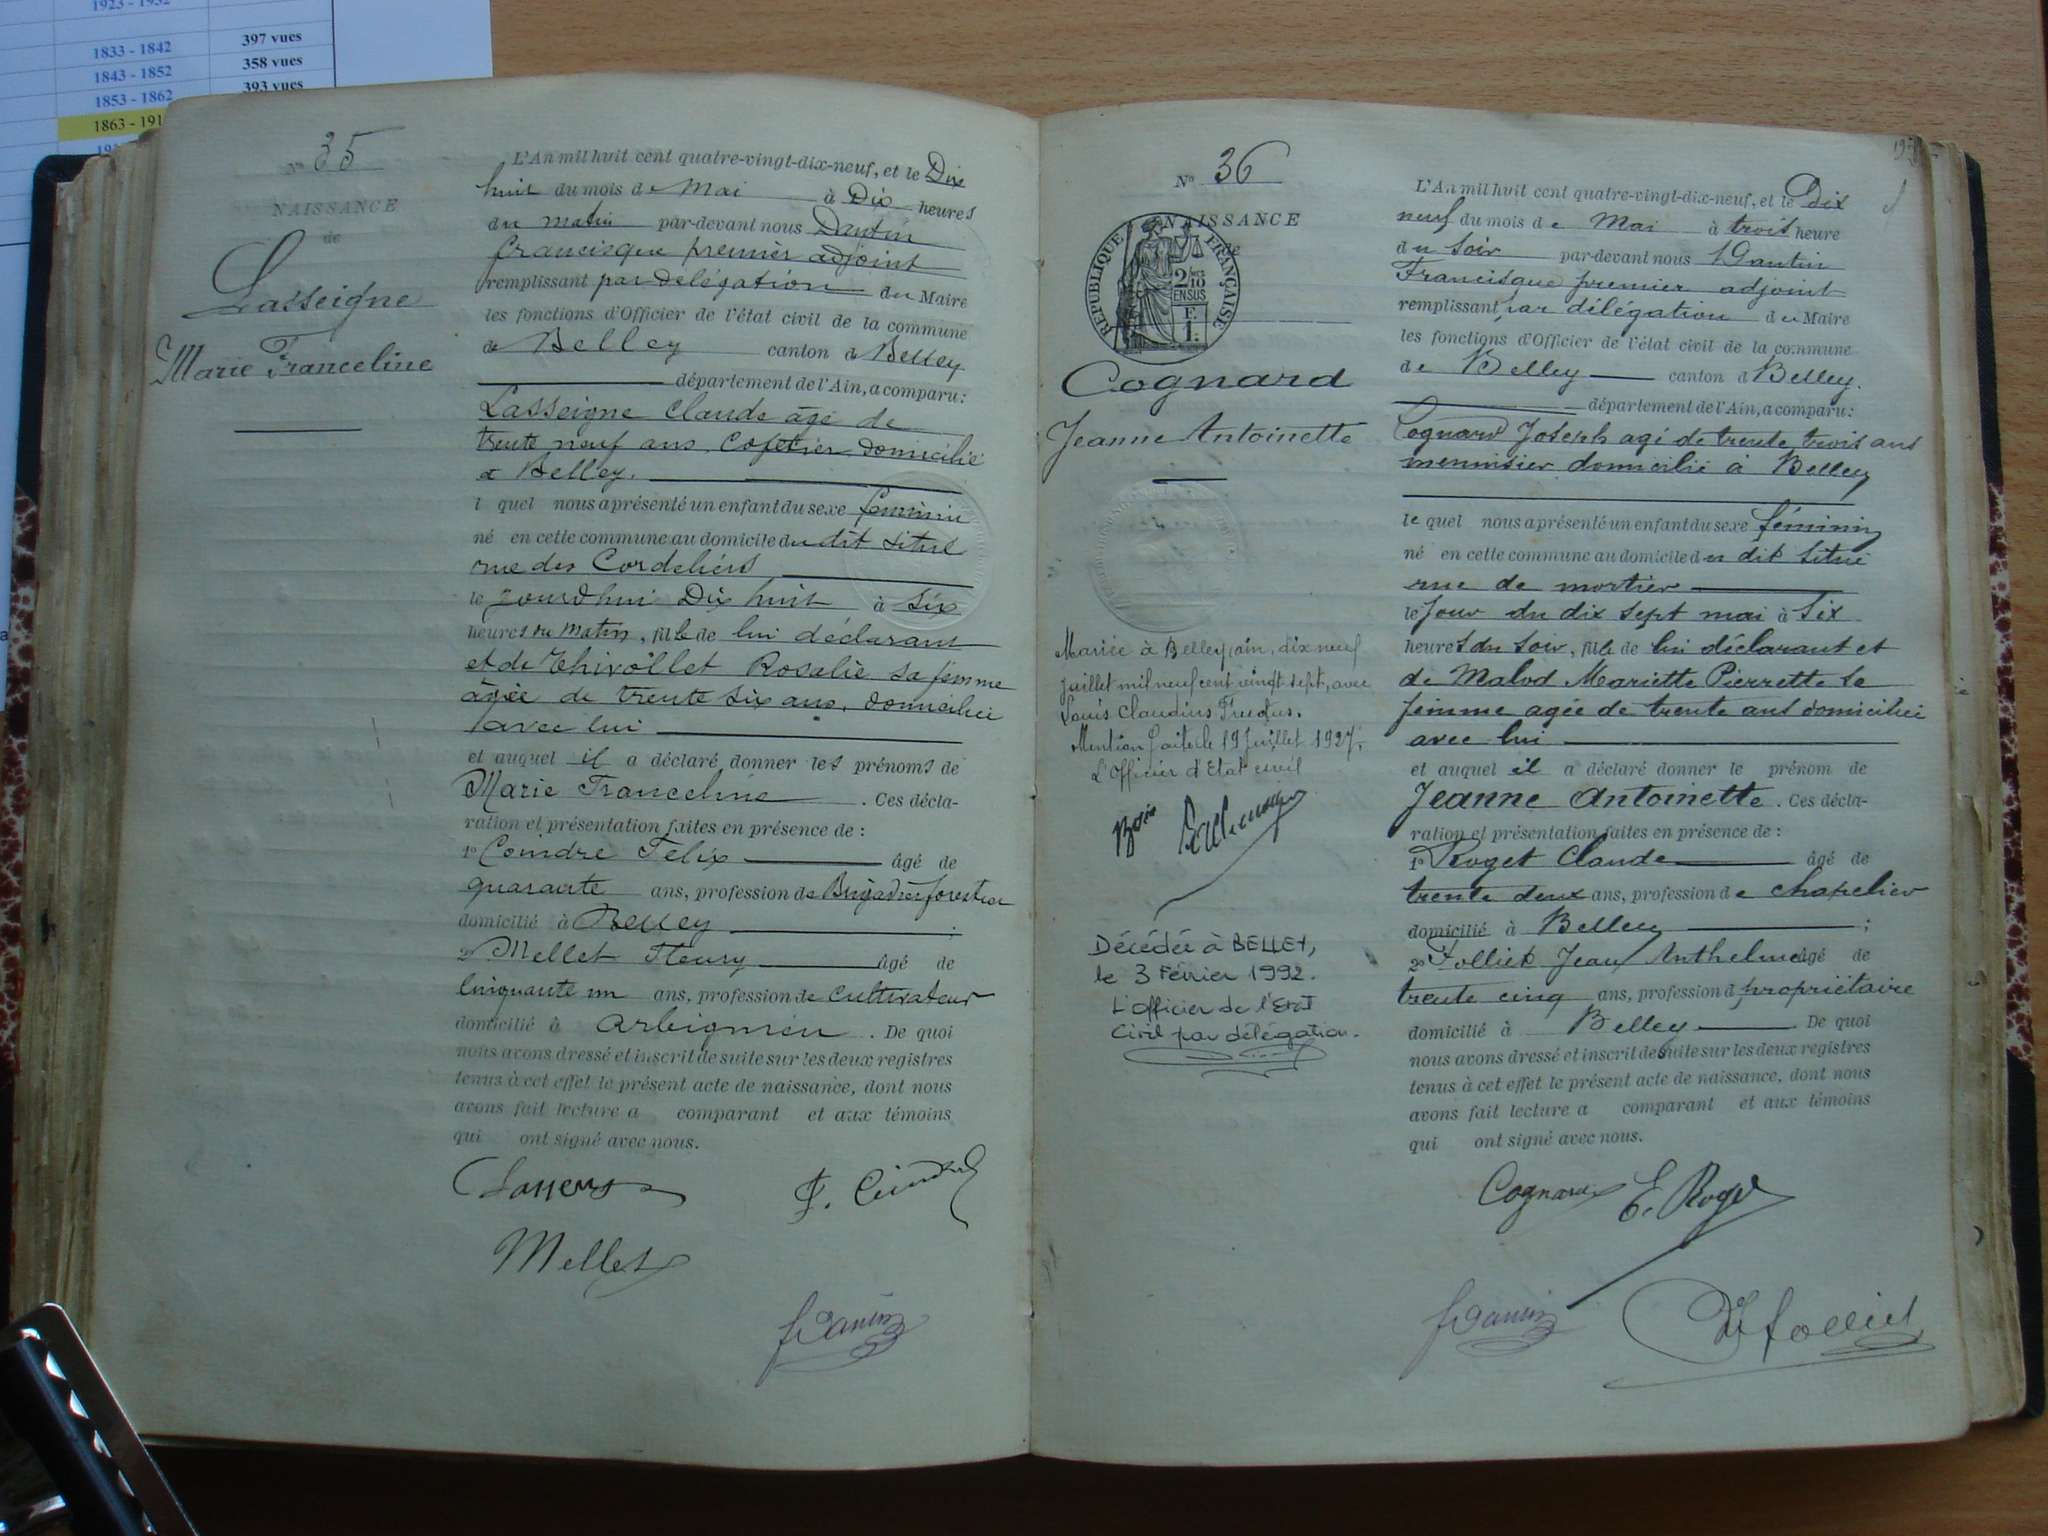 1923 - 1932
1833 - 1842 397 vues
1843 - 1852 358 vues
1853 - 1862 393 vues
1863 - 191
N° 35
NAISSANCE
de
Lasseigne
Marie Franceline
L'An mil huit cent quatre-vingt-dix-neuf, et le Dix
huit du mois de Mai à Dix heures
du matin par-devant nous Dantin
Francisque premier adjoint
remplissant par délégation du Maire
les fonctions d'Officier de l'état civil de la commune
de Belley canton d Belley
département de l'Ain, a comparu :
Lasseigne Claude âgé de
trente neuf ans Cafetier domicilié
à Belley.
l quel nous a présenté un enfant du sexe féminin
né en cette commune au domicile du dit situé
rue des Cordeliers
le jourd'hui Dix huit à six
heures du matin, fille de lui déclarant
et de Thivollet Rosalie sa femme
âgée de trente six ans, domiciliée
avec lui
et auquel il a déclaré donner les prénoms de
Marie Franceline. Ces décla-
ration et présentation faites en présence de :
1° Coindre Felix âgé de
quarante ans, profession de Brigadier forestier
domicilié à Belley ;
2° Mellet Fleury âgé de
cinquante un ans, profession de cultivateur
domicilié à Arbignieu. De quoi
nous avons dressé et inscrit de suite sur les deux registres
tenus à cet effet le présent acte de naissance, dont nous
avons fait lecture a comparant et aux témoins
qui ont signé avec nous.
F. Coindre
Mellet
F Dantin
N° 36
NAISSANCE
de
RÉPUBLIQUE FRANÇAISE
2/10
EN SUS
F.
1.
Cognard
Jeanne Antoinette
Mariée à Belley, ain, dix neuf
juillet mil neuf cent vingt sept, avec
Louis Claudius Fructus.
Mention faite le 19 juillet 1927.
L'Officier d'Etat civil
Décédée à BELLEY,
le 3 Février 1992.
L'Officier de l'Etat
Civil par délégation.
L'An mil huit cent quatre-vingt-dix-neuf, et le Dix
neuf du mois de Mai à trois heure
du soir par-devant nous Dantin
Francisque premier adjoint
remplissant par délégation du Maire
les fonctions d'Officier de l'état civil de la commune
de Belley canton d Belley.
département de l'Ain, a comparu :
Cognard Joseph agé de trente trois ans
menuisier domicilié à Belley
le quel nous a présenté un enfant du sexe féminin
né en cette commune au domicile du dit situé
rue de mortier
le jour du dix sept mai à six
heures du soir, fille de lui déclarant et
de Malod Mariette Pierrette sa
femme agée de trente ans domiciliée
avec lui
et auquel il a déclaré donner le prénom de
Jeanne Antoinette. Ces décla-
ration et présentation faites en présence de :
1° Roget Claude âgé de
trente deux ans, profession de chapelier
domicilié à Belley ;
2° Folliet Jean Anthelme âgé de
trente cinq ans, profession d propriétaire
domicilié à Belley De quoi
nous avons dressé et inscrit de suite sur les deux registres
tenus à cet effet le présent acte de naissance, dont nous
avons fait lecture a comparant et aux témoins
qui ont signé avec nous.
Cognard
F Dantin
Folliet